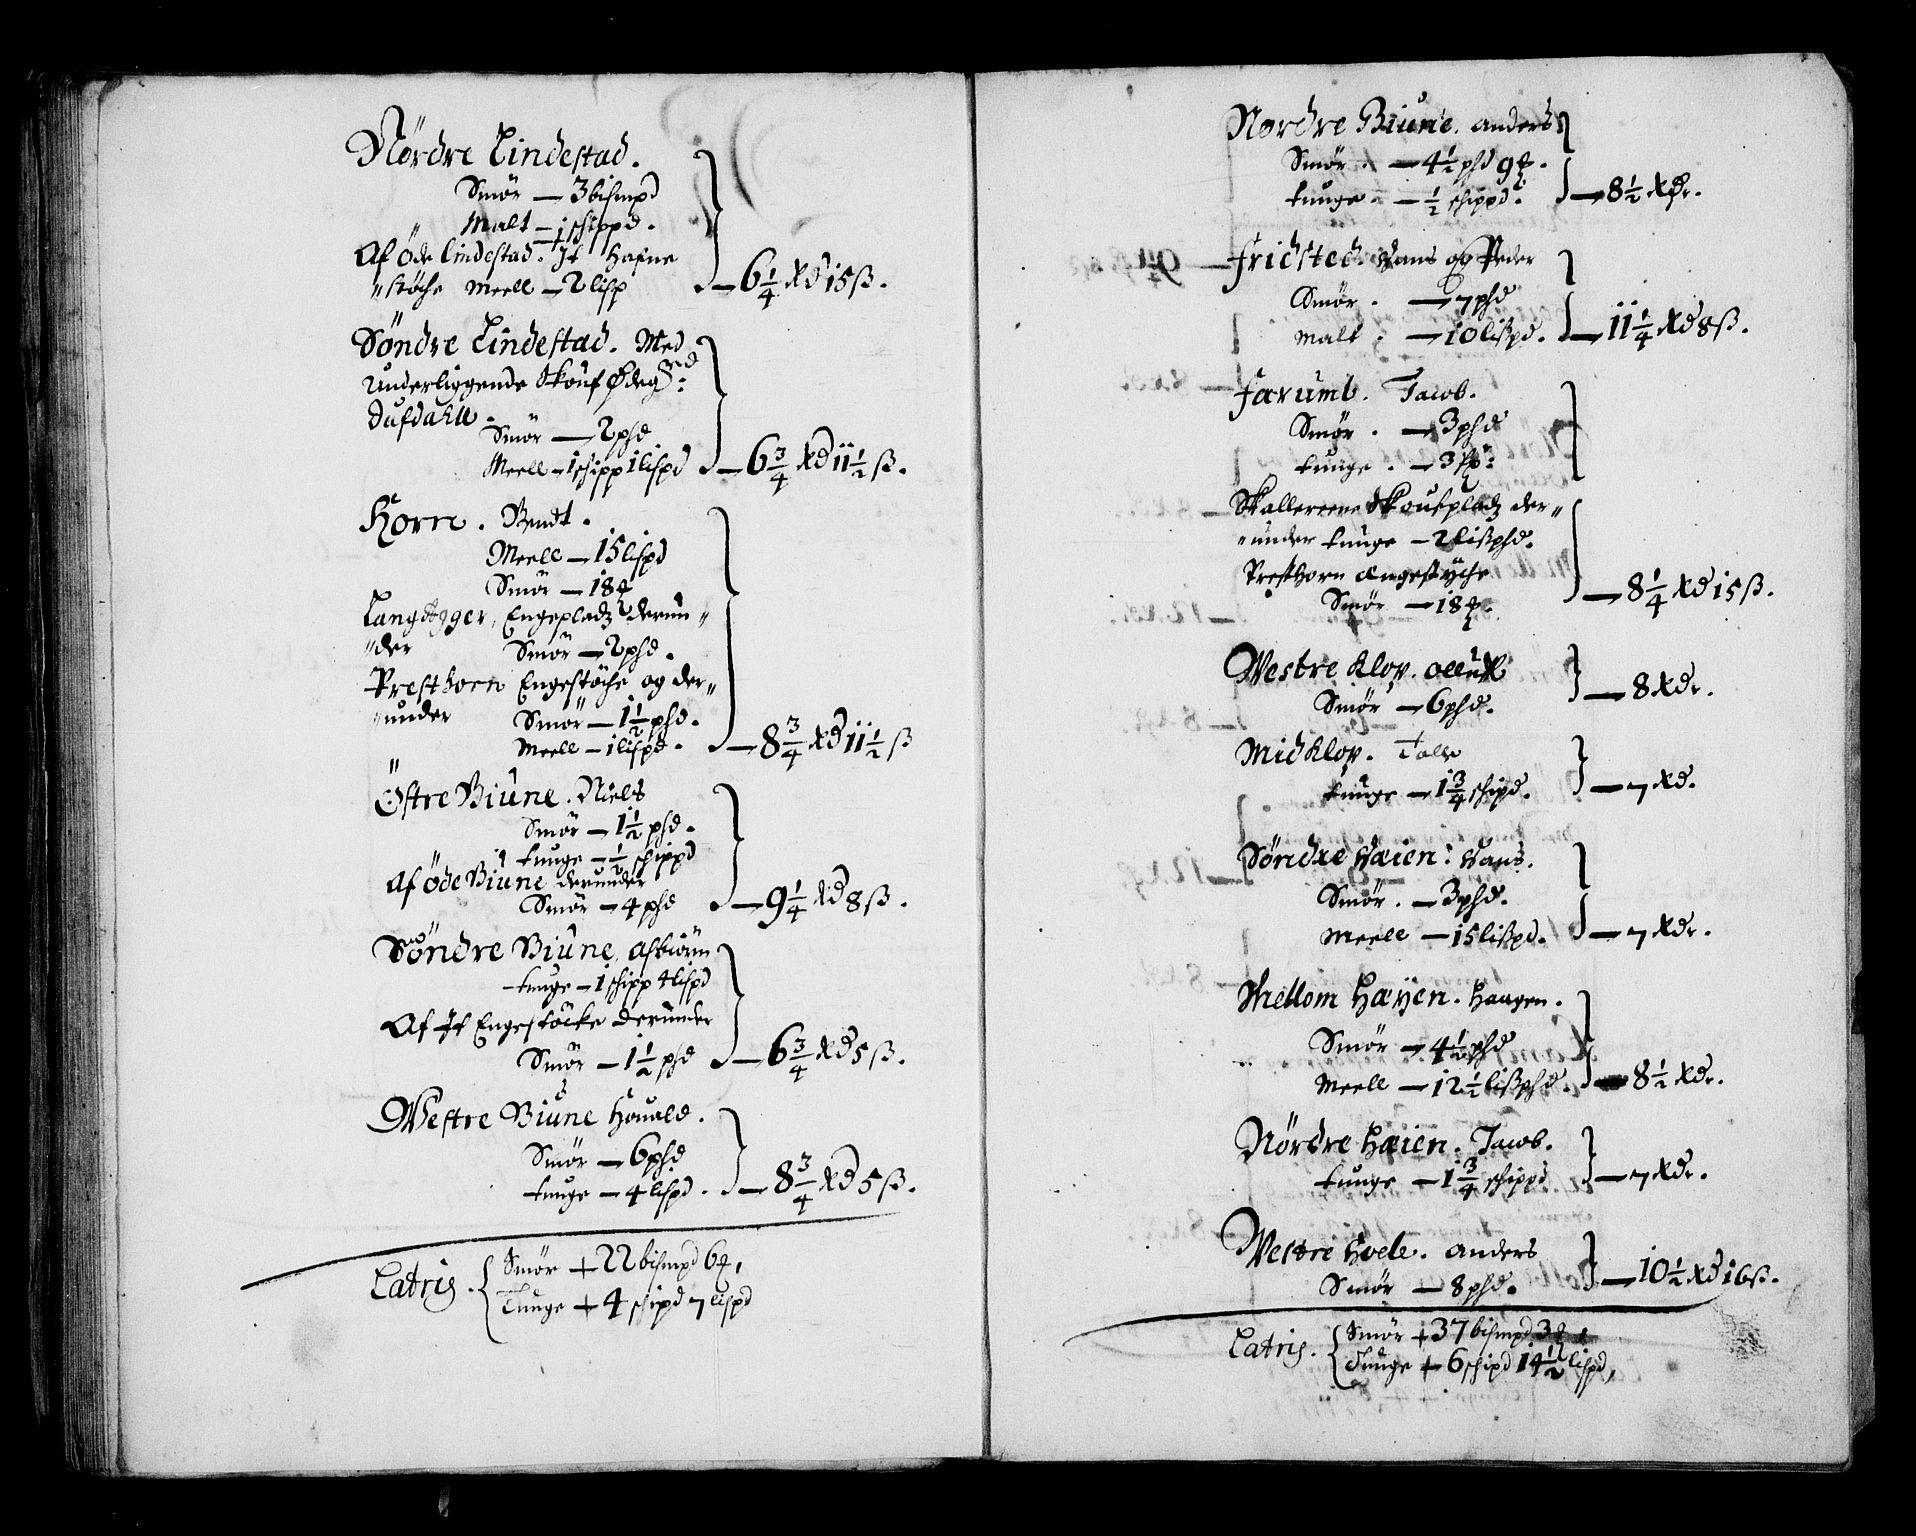 Nördre Lindestad.
Smör — 3 bismpd
Malt — 1 schippd.
Af Öde Lindestad. It Hafne
"stöche Meell — 2 lisp
— 6 1/4 Rd 15 ß.
Söndre Lindestad. Med
Underliggende Skouf Ødeg:rd
Dufdahll.
Smör — 2 phd
Meell — 1 schipp 1 lispd
— 6 3/4 Rd 11 1/2 ß.
Horre. Bendt.
Meell — 15 lispd
Smör — 18 ℔
Langdegger, Engepladz derun"
"der Smör — 2 phd.
Presthorn Engestöche og der"
"under Smör — 1 1/2 phd.
Meell — 1 lispd.
— 8 3/4 Rd 11 1/2 ß
Östre Biune. Niels
Smör — 1 1/2 phd.
tunge — 1/2 schippd
Af öde Biune derunder
Smör — 4 phd
— 9 1/4 Rd 8 ß.
Söndre Biune, Asbiörn
tunge — 1 schipp 4 lispd
Af It Engestöcke derunder
Smör — 1 1/2 phd
— 6 3/4 Rd 5 ß.
Westre Biune Houald.
Smör — 6 phd
tunge — 4 lispd.
— 8 3/4 Rd 5 ß.
Latris. Smör + 22 bismpd 6 ℔,
Tunge + 4 schipd 7 lispd
Nordre Biune. Anders
Smör. — 4 1/2 phd 9 ℔.
tunge. — 1/2 schippd.
— 8 1/2 Rdr.
Fridsted. Hans og Peder
Smör. — 7 phd
Malt. — 10 lißpd.
— 11 1/4 Rd 8 ß.
Farumb. Jacob.
Smör. — 3 phd
tunge. — 3 sp:
Skallereene Skoufpladz der"
"under tunge — 2 lißphd.
Presthorn Engestÿche
Smör — 18 ℔.
— 8 1/4 Rd 15 ß.
Westre Klop. Olluf
Smör — 6 phd.
— 8 Rdr.
Midklop. Tolle
tunge — 1 3/4 schipd.
— 7 Rd.
Söndre Haien: Hans.
Smör. — 3 phd.
Meell — 15 lißpd.
— 7 Rdr.
Mellom Hæÿen. Haagen.
Smör — 4 1/2 phd
Meell — 12 1/2 lißphd.
— 8 1/2 Rdr.
Nördre Haien. Jacob.
tunge — 1 3/4 schippd
— 7 Rdr.
Westre Hoele. Anders
Smör — 8 phd.
— 10 1/2 Rd 16 ß.
Latris. Smör + 37 bismpd 3 ℔,
Tunge + 6 schipd 14 1/2 lispd,